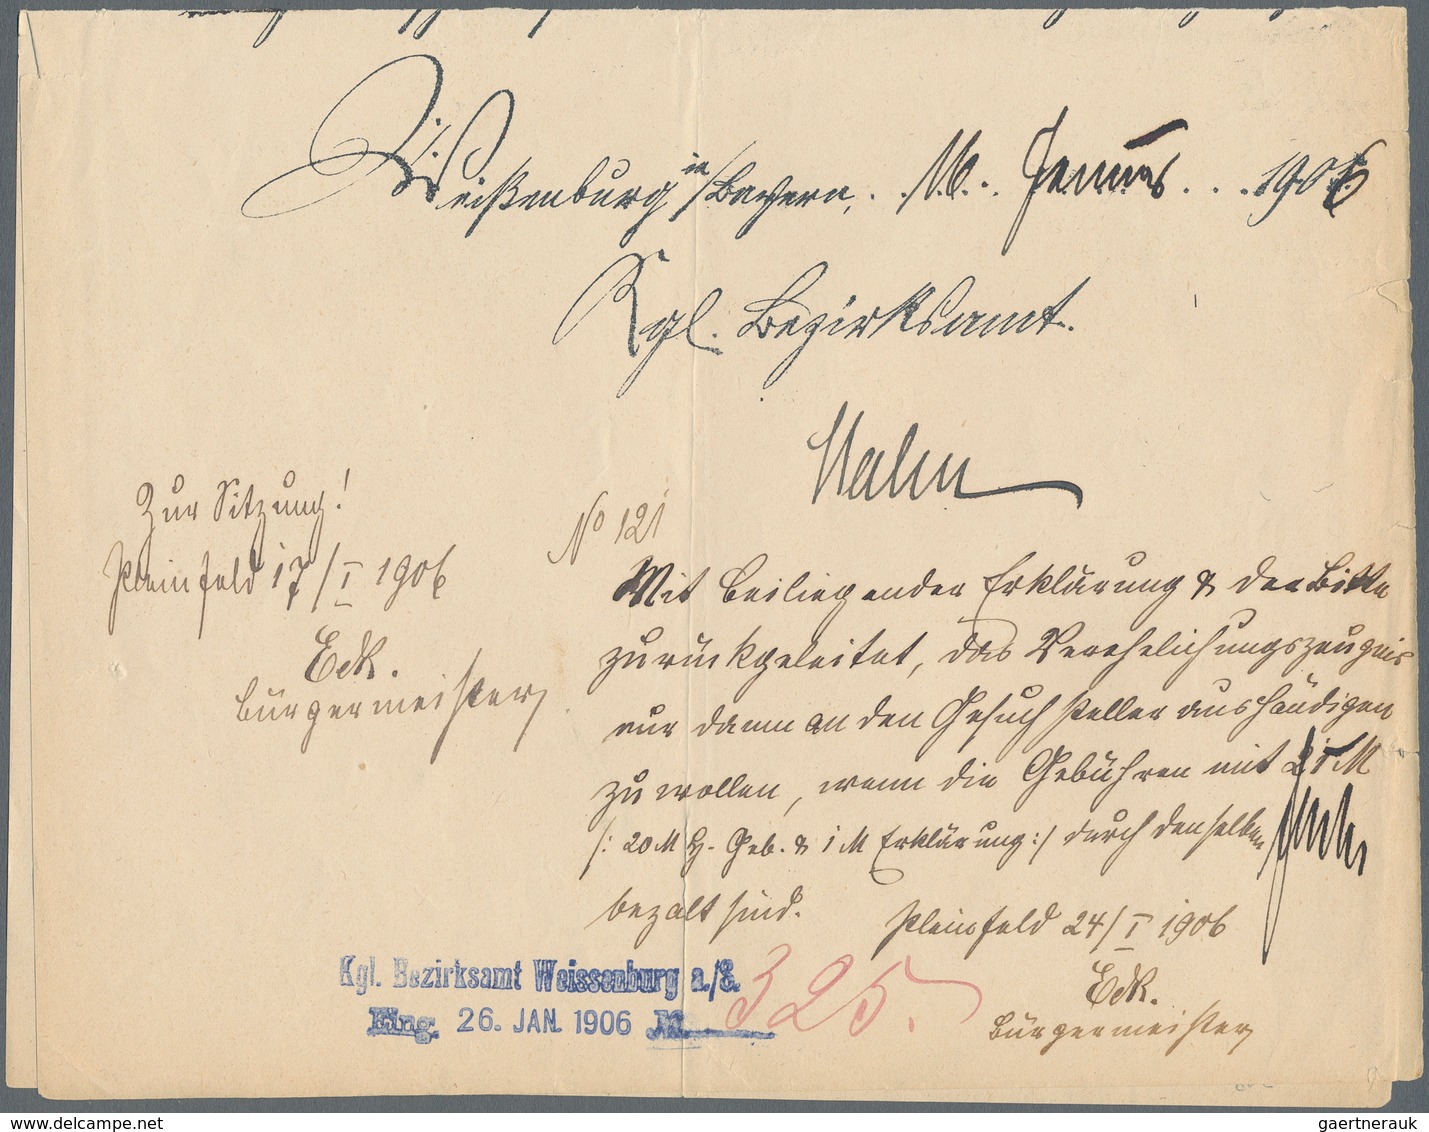 Weißenburg in/Bayern, . . 16. . Januar . . . 1906
Kgl. Bezirksamt.
Zur Sitzung!
Pleinfeld 17/I 1906
Eck.
Bürgermeister
No 121
Mit beiliegender Erklärung & der Bitte
zurückgeleitet, das Verehelichungszeugnis
nur dann an den Gesuchsteller aushändigen
zu wollen, wenn die Gebühren mit 21 M
/: 20 M H. Geb. & 1 M Erklärung :/ durch denselben
bezalt sind.
Pleinfeld 24/I 1906
Eck.
Bürgermeister
Kgl. Bezirksamt Weissenburg a./S.
Eing. 26. JAN. 1906 №
325.
www.delcampe.net
gaertnerauk